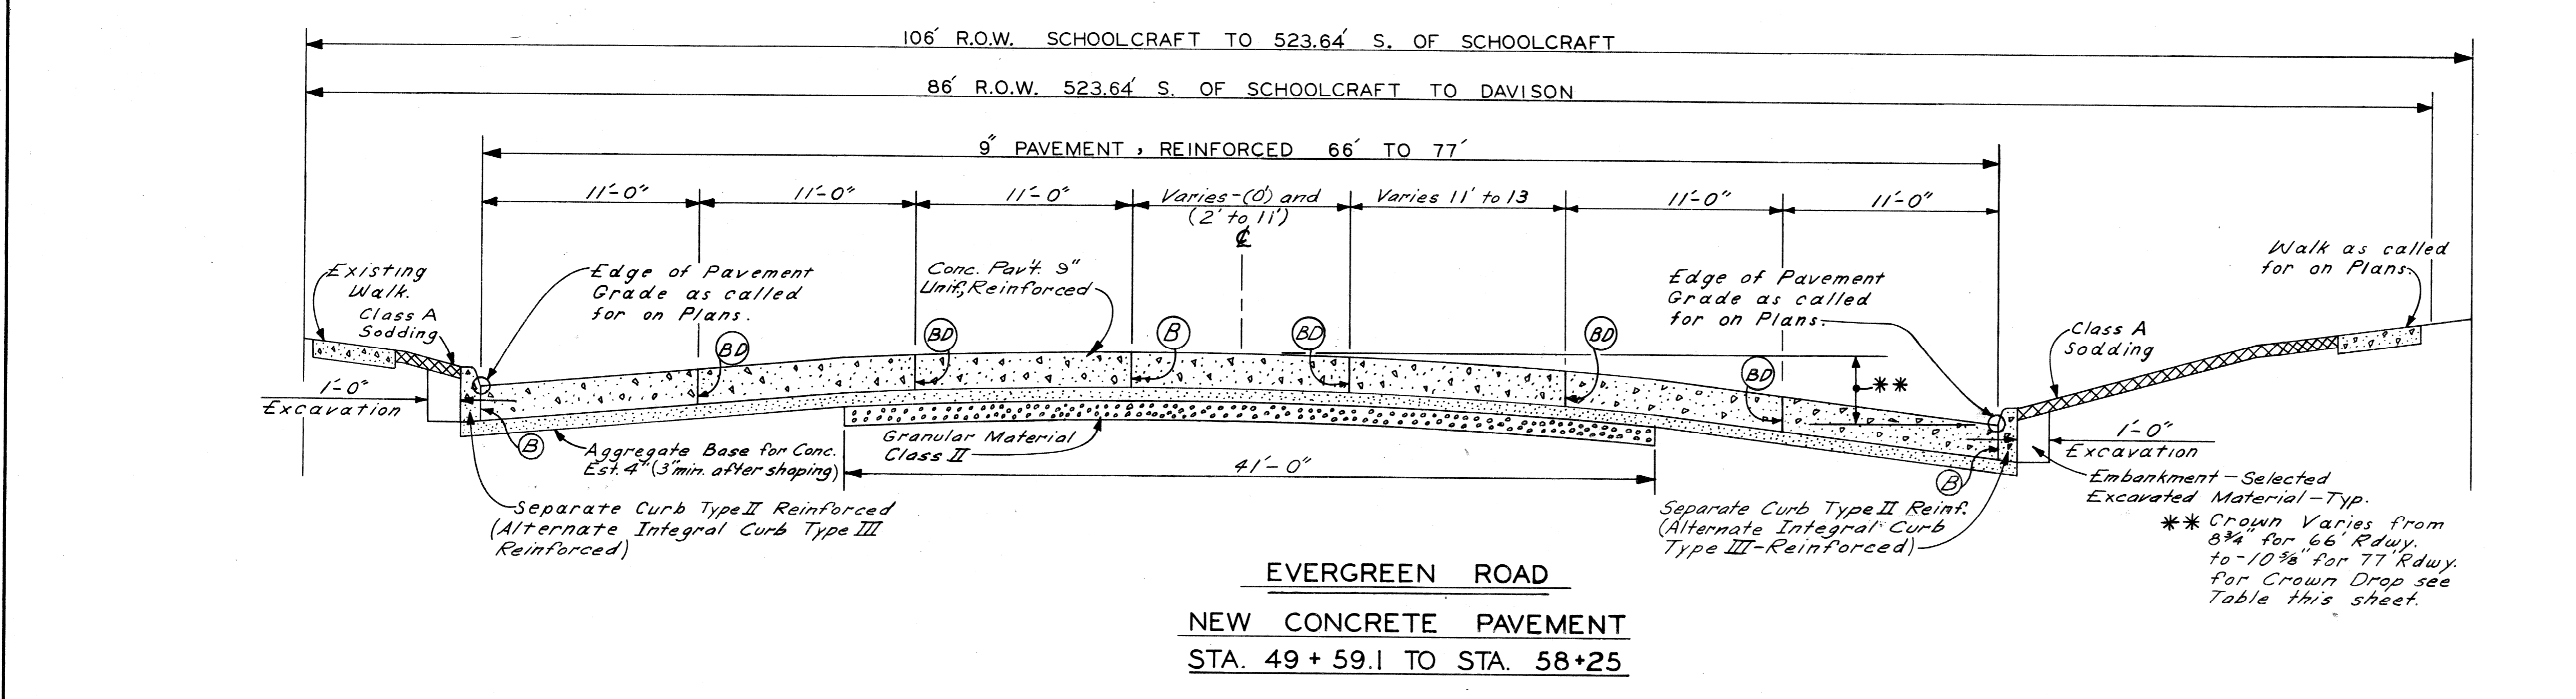 106' R.O.W. SCHOOLCRAFT TO 523.64' S. OF SCHOOLCRAFT
86' R.O.W. 523.64' S. OF SCHOOLCRAFT TO DAVISON
9" PAVEMENT, REINFORCED 66' TO 77'
11'-0"
11'-0"
11'-0"
Varies-(0') and
(2' to 11')
Varies 11' to 13
11'-0"
11'-0"
℄
Existing
Walk.
Class A
Sodding
Edge of Pavement
Grade as called
for on Plans.
Conc. Pav't. 9"
Unif., Reinforced
Edge of Pavement
Grade as called
for on Plans.
Walk as called
for on Plans.
Class A
Sodding
BD
BD
B
BD
BD
BD
**
1'-0"
Excavation
B
Aggregate Base for Conc.
Est. 4" (3" min. after shaping)
Granular Material
Class II
41'-0"
B
1'-0"
Excavation
Separate Curb Type II Reinforced
(Alternate Integral Curb Type III
Reinforced)
Separate Curb Type II Reinf.
(Alternate Integral Curb
Type III-Reinforced)
Embankment-Selected
Excavated Material-Typ.
** Crown Varies from
8 3/4" for 66' Rdwy.
to-10 5/8" for 77' Rdwy.
for Crown Drop see
Table this sheet.
EVERGREEN ROAD
NEW CONCRETE PAVEMENT
STA. 49+59.1 TO STA. 58+25